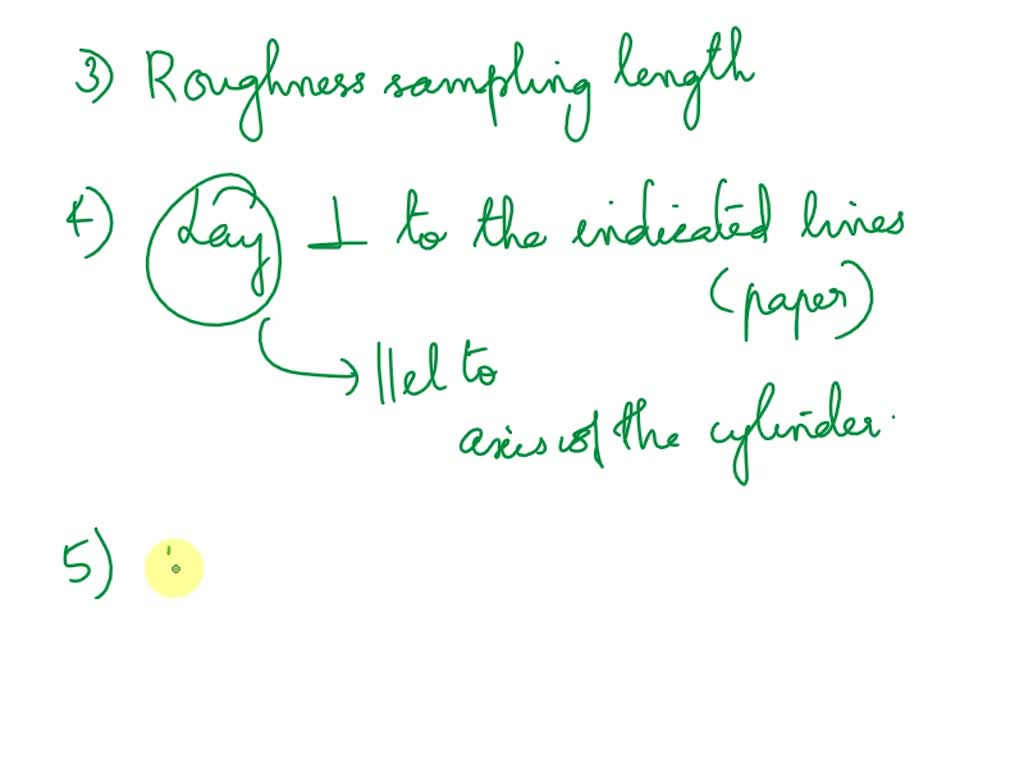 3) Roughness sampling length
4) Lay ⊥ to the indicated lines
(paper)
→ ||el to
axis of the cylinder.
5)